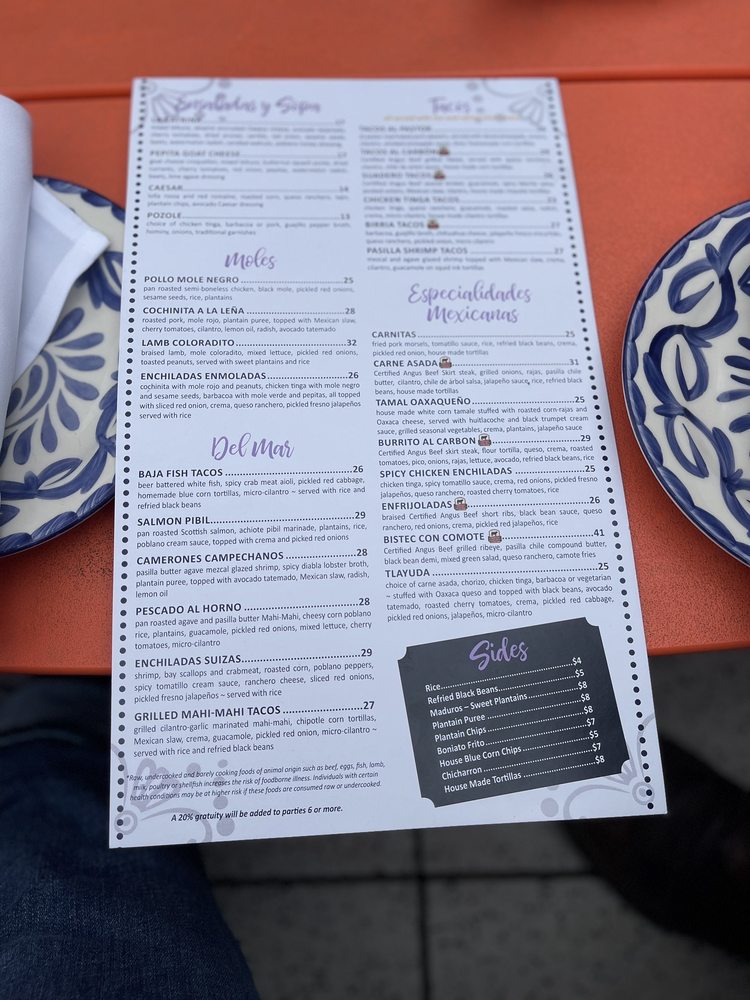 Ensaladas y Sopa
PEPITA GOAT CHEESE
CAESAR 14
lolla rossa and red romaine, roasted corn, queso ranchero, tajin
plantain chips, avocado Caesar dressing
POZOLE 13
choice of chicken tinga, barbacoa or pork, guajillo pepper broth,
hominy, onions, traditional garnishes
Moles
POLLO MOLE NEGRO 25
pan roasted semi-boneless chicken, black mole, pickled red onions,
sesame seeds, rice, plantains
COCHINITA A LA LEÑA 28
roasted pork, mole rojo, plantain puree, topped with Mexican slaw,
cherry tomatoes, cilantro, lemon oil, radish, avocado tatemado
LAMB COLORADITO 32
braised lamb, mole coloradito, mixed lettuce, pickled red onions,
toasted peanuts, served with sweet plantains and rice
ENCHILADAS ENMOLADAS 26
cochinita with mole rojo and peanuts, chicken tinga with mole negro
and sesame seeds, barbacoa with mole verde and pepitas, all topped
with sliced red onion, crema, queso ranchero, pickled fresno jalapeños
served with rice
Del Mar
BAJA FISH TACOS 26
beer battered white fish, spicy crab meat aioli, pickled red cabbage,
homemade blue corn tortillas, micro-cilantro ~ served with rice and
refried black beans
SALMON PIBIL 29
pan roasted Scottish salmon, achiote pibil marinade, plantains, rice,
poblano cream sauce, topped with crema and picked red onions
CAMERONES CAMPECHANOS 28
pasilla butter agave mezcal glazed shrimp, spicy diabla lobster broth,
plantain puree, topped with avocado tatemado, Mexican slaw, radish,
lemon oil
PESCADO AL HORNO 28
pan roasted agave and pasilla butter Mahi-Mahi, cheesy corn poblano
rice, plantains, guacamole, pickled red onions, mixed lettuce, cherry
tomatoes, micro-cilantro
ENCHILADAS SUIZAS 29
shrimp, bay scallops and crabmeat, roasted corn, poblano peppers,
spicy tomatillo cream sauce, ranchero cheese, sliced red onions,
pickled fresno jalapeños ~ served with rice
GRILLED MAHI-MAHI TACOS 27
grilled cilantro-garlic marinated mahi-mahi, chipotle corn tortillas,
Mexican slaw, crema, guacamole, pickled red onion, micro-cilantro ~
served with rice and refried black beans
*Raw, undercooked and barely cooking foods of animal origin such as beef, eggs, fish, lamb,
milk, poultry or shellfish increases the risk of foodborne illness. Individuals with certain
health conditions may be at higher risk if these foods are consumed raw or undercooked.
A 20% gratuity will be added to parties 6 or more.
Tacos
TACOS AL PASTOR
TACOS AL CARBON
GUADERO TACOS
CHICKEN TINGA TACOS
BIRRIA TACOS 27
PASILLA SHRIMP TACOS 27
mezcal and agave glazed shrimp topped with Mexican slaw, crema,
cilantro, guacamole on squid ink tortillas
Especialidades
Mexicanas
CARNITAS 25
fried pork morsels, tomatillo sauce, rice, refried black beans, crema,
pickled red onion, house made tortillas
CARNE ASADA 31
Certified Angus Beef Skirt steak, grilled onions, rajas, pasilla chile
butter, cilantro, chile de árbol salsa, jalapeño sauce, rice, refried black
beans, house made tortillas
TAMAL OAXAQUEÑO 25
house made white corn tamale stuffed with roasted corn-rajas and
Oaxaca cheese, served with huitlacoche and black trumpet cream
sauce, grilled seasonal vegetables, crema, plantains, jalapeño sauce
BURRITO AL CARBON 29
Certified Angus Beef skirt steak, flour tortilla, queso, crema, roasted
tomatoes, pico, onions, rajas, lettuce, avocado, refried black beans, rice
SPICY CHICKEN ENCHILADAS 25
chicken tinga, spicy tomatillo sauce, crema, red onions, pickled fresno
jalapeños, queso ranchero, roasted cherry tomatoes, rice
ENFRIJOLADAS 26
braised Certified Angus Beef short ribs, black bean sauce, queso
ranchero, red onions, crema, pickled red jalapeños, rice
BISTEC CON COMOTE 41
Certified Angus Beef grilled ribeye, pasilla chile compound butter,
black bean demi, mixed green salad, queso ranchero, camote fries
TLAYUDA 25
choice of carne asada, chorizo, chicken tinga, barbacoa or vegetarian
~ stuffed with Oaxaca queso and topped with black beans, avocado
tatemado, roasted cherry tomatoes, crema, pickled red cabbage,
pickled red onions, jalapeños, micro-cilantro
Sides
Rice $4
Refried Black Beans $5
Maduros – Sweet Plantains $8
Plantain Puree $8
Plantain Chips $8
Boniato Frito $7
House Blue Corn Chips $5
Chicharron $7
House Made Tortillas $8